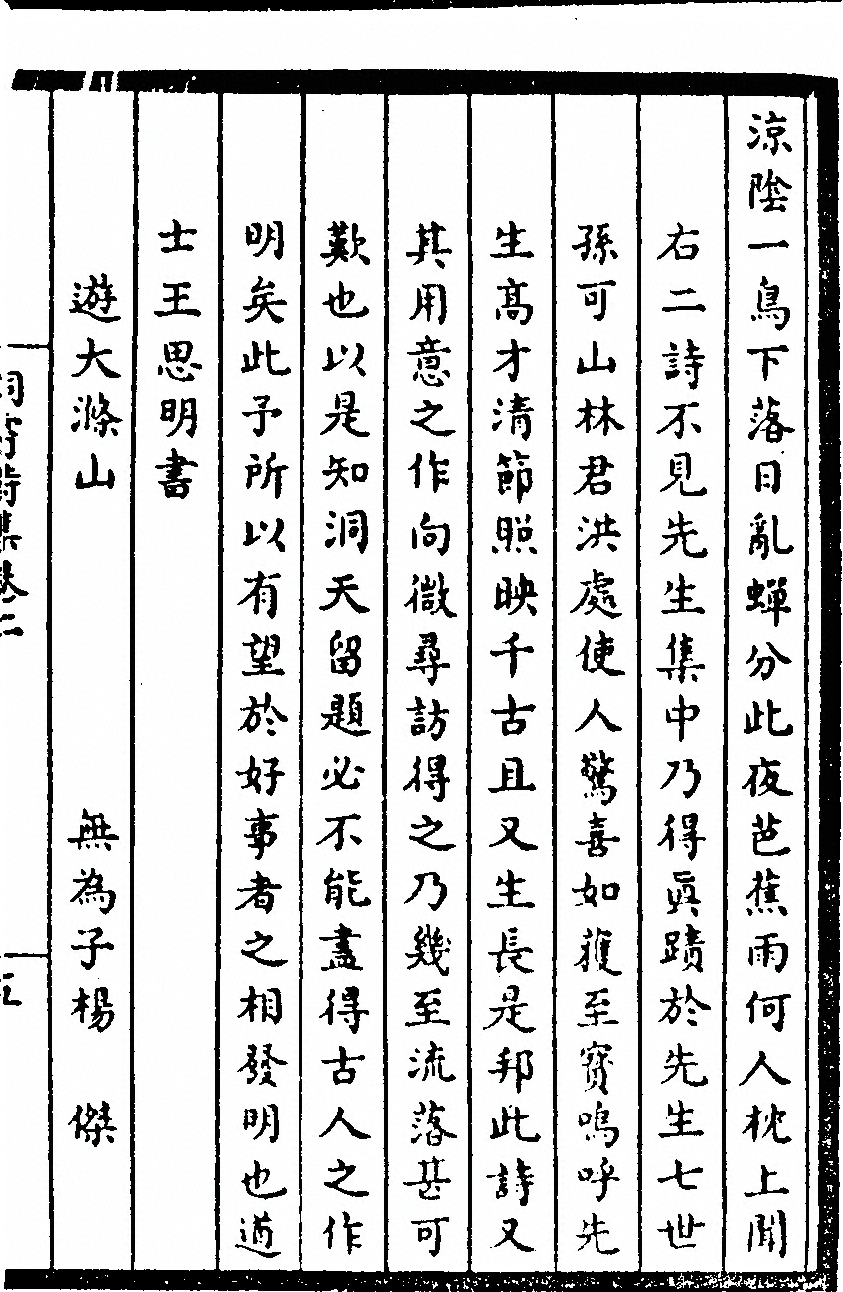 涼陰一鳥下落日亂蟬分此夜芭蕉雨何人枕上聞
右二詩不見先生集中乃得眞蹟於先生七世
孫可山林君洪處使人驚喜如獲至寳嗚呼先
生髙才清節照映千古且又生長是邦此詩又
其用意之作向微尋訪得之乃幾至流落甚可
歎也以是知洞天留題必不能盡得古人之作
明矣此予所以有望於好事者之相發明也遒
士王思明書
遊大滌山 無為子楊 傑
洞霄詩集卷二 五